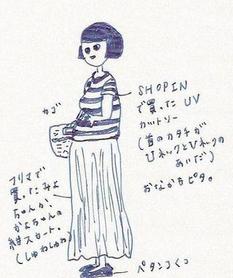 SHOPIN
で買った UV
カットソー
(首のカタチが
UネックとVネックの
あいだ)
おなかもピタ。
カゴ
フリマで
買ったみよ
ちゃんか、
かよちゃんの
紺スカート。
(しゅわしゅわ)
ペタンコぐつ